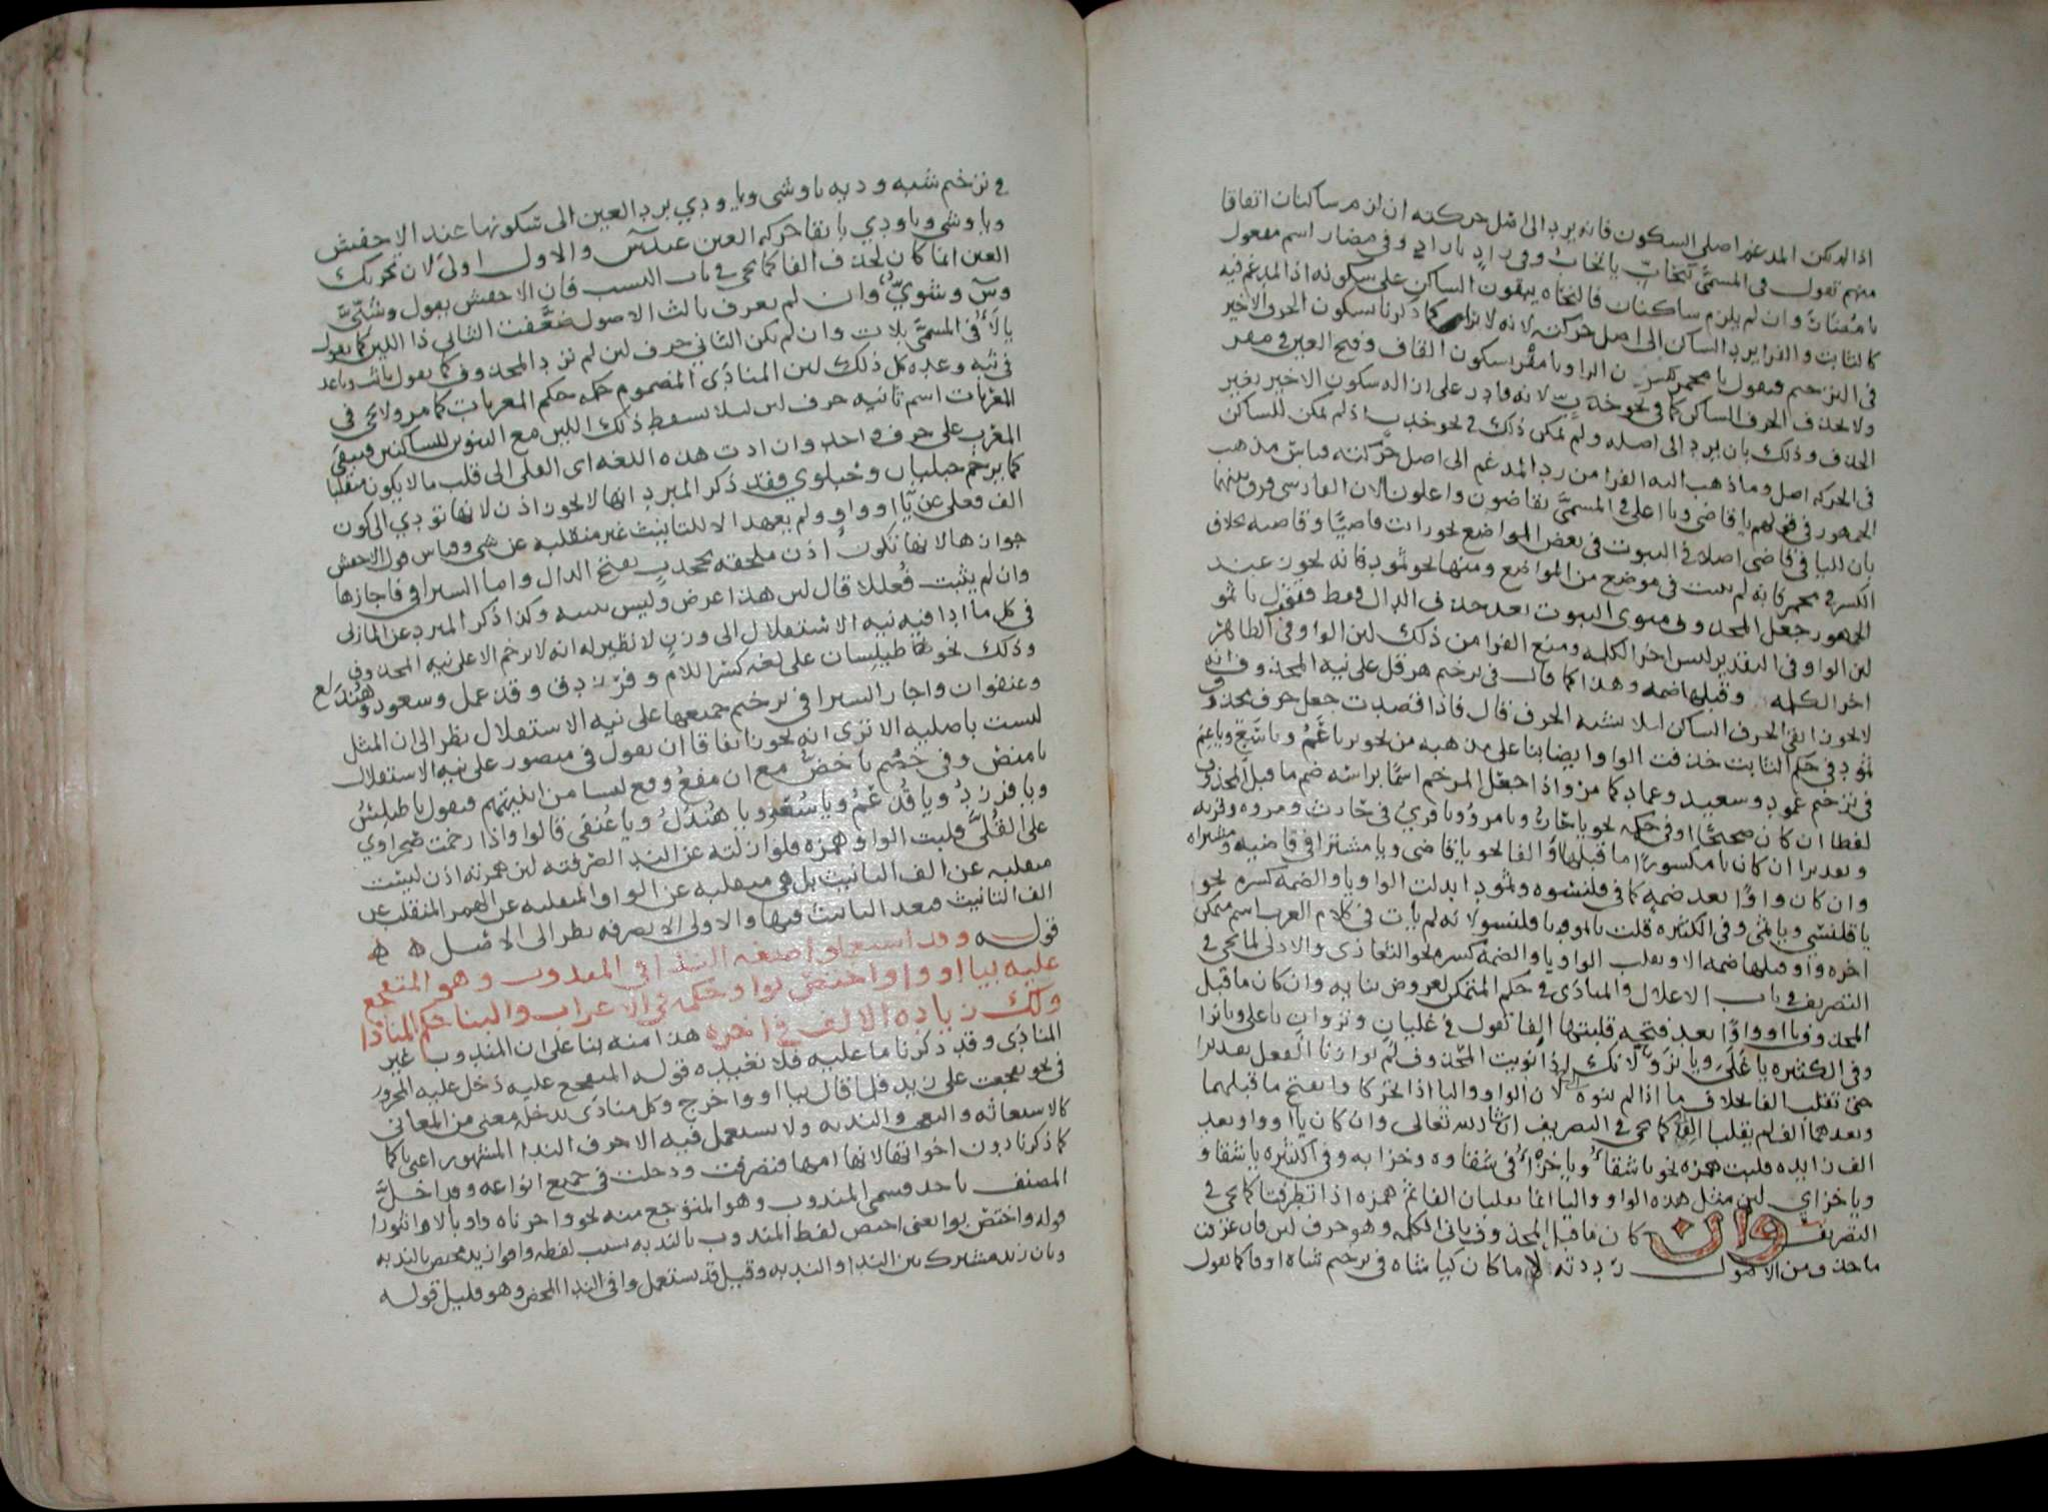 اذا لم يكن المدغم اصلي السكون فانه يرد الى اصل حركته ان لزم ساكنان اتفاقا
منهم تقول في المسمى بتحابّ يا تحابُ وفي رادٍ يا رادِ وفي مضار اسم مفعول
يا مضارَ وان لم يلزم ساكنان فالنحاة يبقون الساكن على سكونه اذ المدغم فيه
كالثابت والفرا يرد الساكن الى اصل حركته لانه لا كما ذكرنا سكون الحرف الاخير
في الترخيم فيقول يا محمر بكسر الرا ويا مفر بسكون القاف وفتح العين في مفر
ولا يحذف الحرف الساكن كما في نحو خدبّ لانه قادر على ازاله سكون الاخير بغير
الحذف وذلك بان يرد الى اصله ولم يمكن ذلك في نحو خدب اذ لم يمكن للساكن
في الحركه اصل وما ذهب اليه الفرا من رد المدغم الى اصل حركته قياس مذهب
الجمهور في قولهم يا قاضي ويا اعلى في المسمى بقاضون واعلون الا ان الفارسي فرق بينهما
بان لليا في قاضي اصلا في الثبوت في بعض المواضع نحو رايت قاضيا وقاضيه بخلاف
الكسر في محمر فانه لم يثبت في موضع من المواضع ومنها نحو ثمود فانه يجوز عند
الجمهور جعل المحذوف منوى الثبوت بعد حذف الدال فقط فتقول يا ثمو
لان الواو في التقدير ليس اخر الكلمه ومنع الفرا من ذلك لان الواو في الظاهر
اخر الكلمه وقبلها ضمه وهذا كما قال في ترخيم هرقل على نيه المحذوف انه
لا يجوز ابقى الحرف الساكن لئلا يشبه الحرف قال فاذا قصدت جعل حرف محذوف
ثمود في حكم الثابت حذفت الواو ايضا بنا على مذهبه من نحو
في ترخيم ثمود وسعيد وعماد كما مر واذا جعل المرخم اسما براسه ضم ما قبل المحذوف
لفظا ان كان صحيحا او في حكمه نحو يا حارُ ويا مروُ ويا فريُ في حارث ومروه وفريه
وتقديرا ان كان يا مكسورا ما قبلها او الفا نحو يا قاضي ويا مشترا في قاضيه ومشتراه
وان كان واوا بعد ضمه كما في قلنسوه وثمود ابدلت الواو يا والضمه كسره نحو
يا قلنسي ويا ثمى وفي الكثيره قلت يا ثمو ويا قلنسو لانه لم يات في كلام العرب اسم متمكن
اخره واو قبلها ضمه الا وتقلب الواو يا والضمه كسره نحو التغازى والادلى لما يجى في
التصريف في باب الاعلال والمنادى في حكم المتمكن لعروض بنايه وان كان ما قبل
المحذوف يا او واوا بعد فتحه قلبتها الفا تقول في غليان ونزوان يا غلى ويا نزا
وفي الكثيره يا غلَيَ ويا نزَوَ لانك اذا نويت المحذوف لم توازنا الفعل تقديرا
حتى تقلب الفا بخلاف ما اذا لم تنوه لان الواو واليا اذا تحركا وانفتح ما قبلهما
وبعدهما الف لم يقلبا الفا كما يجى في التصريف ان شا الله تعالى وان كان يا او واوا بعد
الف زايده قلبت همزه نحو يا شقاءُ ويا خزاءُ في شقاوه وخزايه وفي الكثيره يا شقاوَ
ويا خزايَ لان مثل هذه الواو واليا انما يقلبان الفا ثم همزه اذا تطرفتا كما يجى في
التصريف وان كان ما قبل المحذوف ثاني الكلمه وهو حرف لين فان عرفت
ما حذف من الاصول رددته لاما كان كيا شاه في ترخيم شاه او فا كما تقول
في ترخيم شيه وديه يا وشى ويا ودي برد العين الى سكونها عند الاخفش
ويا وشى ويا ودي بابقا حركه العين عند سَ والاول اولى لان تحريك
العين انما كان لحذف الفا كما يجى في باب النسب فان الاخفش يقول وشيىّ
وسَ وشويّ وان لم يعرف ثالث الاصول ضعّفت الثاني ذا اللين كما تقول
يا لاءُ في المسمى بلات وان لم يكن الثاني حرف لين لم ترد المحذوف كما تقول يا ثب ويا عد
في ثبه وعده كل ذلك لان المنادى المضموم حكمه حكم المعربات كما مر ولا يجى في
المعربات اسم ثانيه حرف لين لئلا يسقط ذلك اللين مع التنوين للساكنين فيبقى
المعرب على حرف واحد وان ادت هذه اللغه اى القلى الى قلب ما لا يكون منقلبا
كما ترخم حبليان وحبلوي فقد ذكر المبرد انها لا تجوز اذن لانها تودي الى كون
الف فعلى عن يا او واو ولم يعهد الا للتانيث غير منقلبه عن شى وقياس قول الاخفش
جوازها لانها تكون اذن ملحقه بجحدب بفتح الدال واما السيرافي فاجازها
وان لم يثبت فعللا قال لان هذا عرض وليس ببنيه وكذا ذكر المبرد عن المازني
في كل ما ادا فيه نيه الاستقلال الى وزن لا نظير له انه لا يرخم الا على نيه المحذوف
وذلك نحو طيلِسان على لغه كسر اللام وفرزدق وقدعمل وسعود وهندلع
وعنفوان واجاز السيرافي ترخيم جميعها على نيه الاستقلال نظرا الى ان المثل
ليست باصليه الا ترى انه يجوز اتفاقا ان يقول في منصور على نيه الاستقلال
يا منص وفي خضم يا خضُ مع ان مفعُ وفع ليسا من ابنيتهم فيقول يا طيلسُ
ويا فرزدُ ويا قدعمُ ويا سُعَد ويا هندلُ ويا عنفى قالوا واذا رخمت صحراوي
على القُلّى قلبت الواو همزه فلو ازلته عن الندا الصرفته لان همزته اذن ليست
منقلبه عن الف التانيث بل هى منقلبه عن الواو المنقلبه عن الهمز المنقلب عن
الف التانيث فبعد التانيث فيها والاولى الا يصرفه نظرا الى الاصل ه ه
قوله وقد استعملوا صيغه الندا في المندوب وهو المتفجع
عليه بيا او وا واختص بوا وحكمه في الاعراب والبنا حكم المنادا
ولك زياده الالف في اخره هذا منه بنا على ان المندوب غير
المنادى وقد ذكرنا ما عليه فلا نعيده قوله المتفجع عليه دخل عليه المجرور
في نحو تفجعت على زيد فلما قال بيا او وا خرج وكل منادى يدخله معنى من المعاني
كالاستغاثه والتعجب والندبه ولا يستعمل فيه الا حرف الندا المشهور اعنى يا كما
كما ذكرنا دون اخواتها لانها امها فتصرفت ودخلت في جميع انواعه وقد اخلّ
المصنف باحد قسمي المندوب وهو المتوجع منه نحو وا حزناه واو يلاه وا ثبورا
قوله واختص بوا يعنى اختص لفظ المندوب بالندبه بسبب لفظه وا فوا زيد مختص بالندبه
ويا زيد مشترك بين الندا والندبه وقيل قد يستعمل وا في الندا المحض وهو قليل قوله